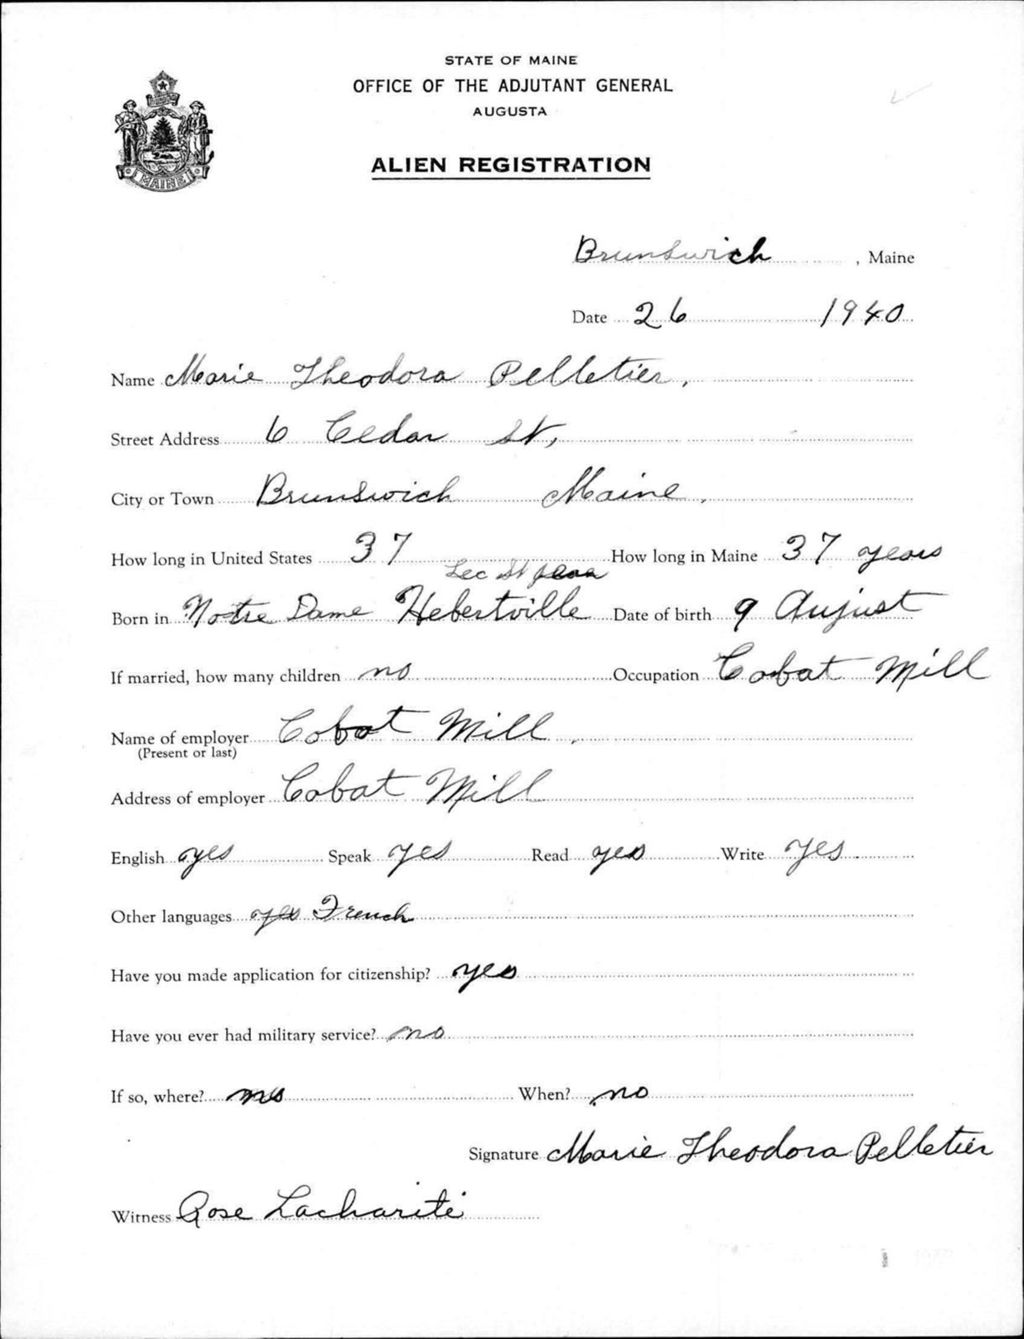 STATE OF MAINE
OFFICE OF THE ADJUTANT GENERAL
AUGUSTA
MAINE
ALIEN REGISTRATION
Brunswich, Maine
Date 26 1940
Name Marie Theodora Pelletier,
Street Address 6 Cedar St,
City or Town Brunswich Maine.
How long in United States 37 How long in Maine 37 years
Lec St Jean
Born in Notre Dame Hebertville Date of birth 9 August
If married, how many children no Occupation Cobat Mill
Name of employer Cobot Mill.
(Present or last)
Address of employer Cobat Mill
English yes Speak yes Read yes Write yes.
Other languages yes French
Have you made application for citizenship? yes
Have you ever had military service? no
If so, where? no When? no
Signature Marie Theodora Pelletier
Witness Rose Lacharité